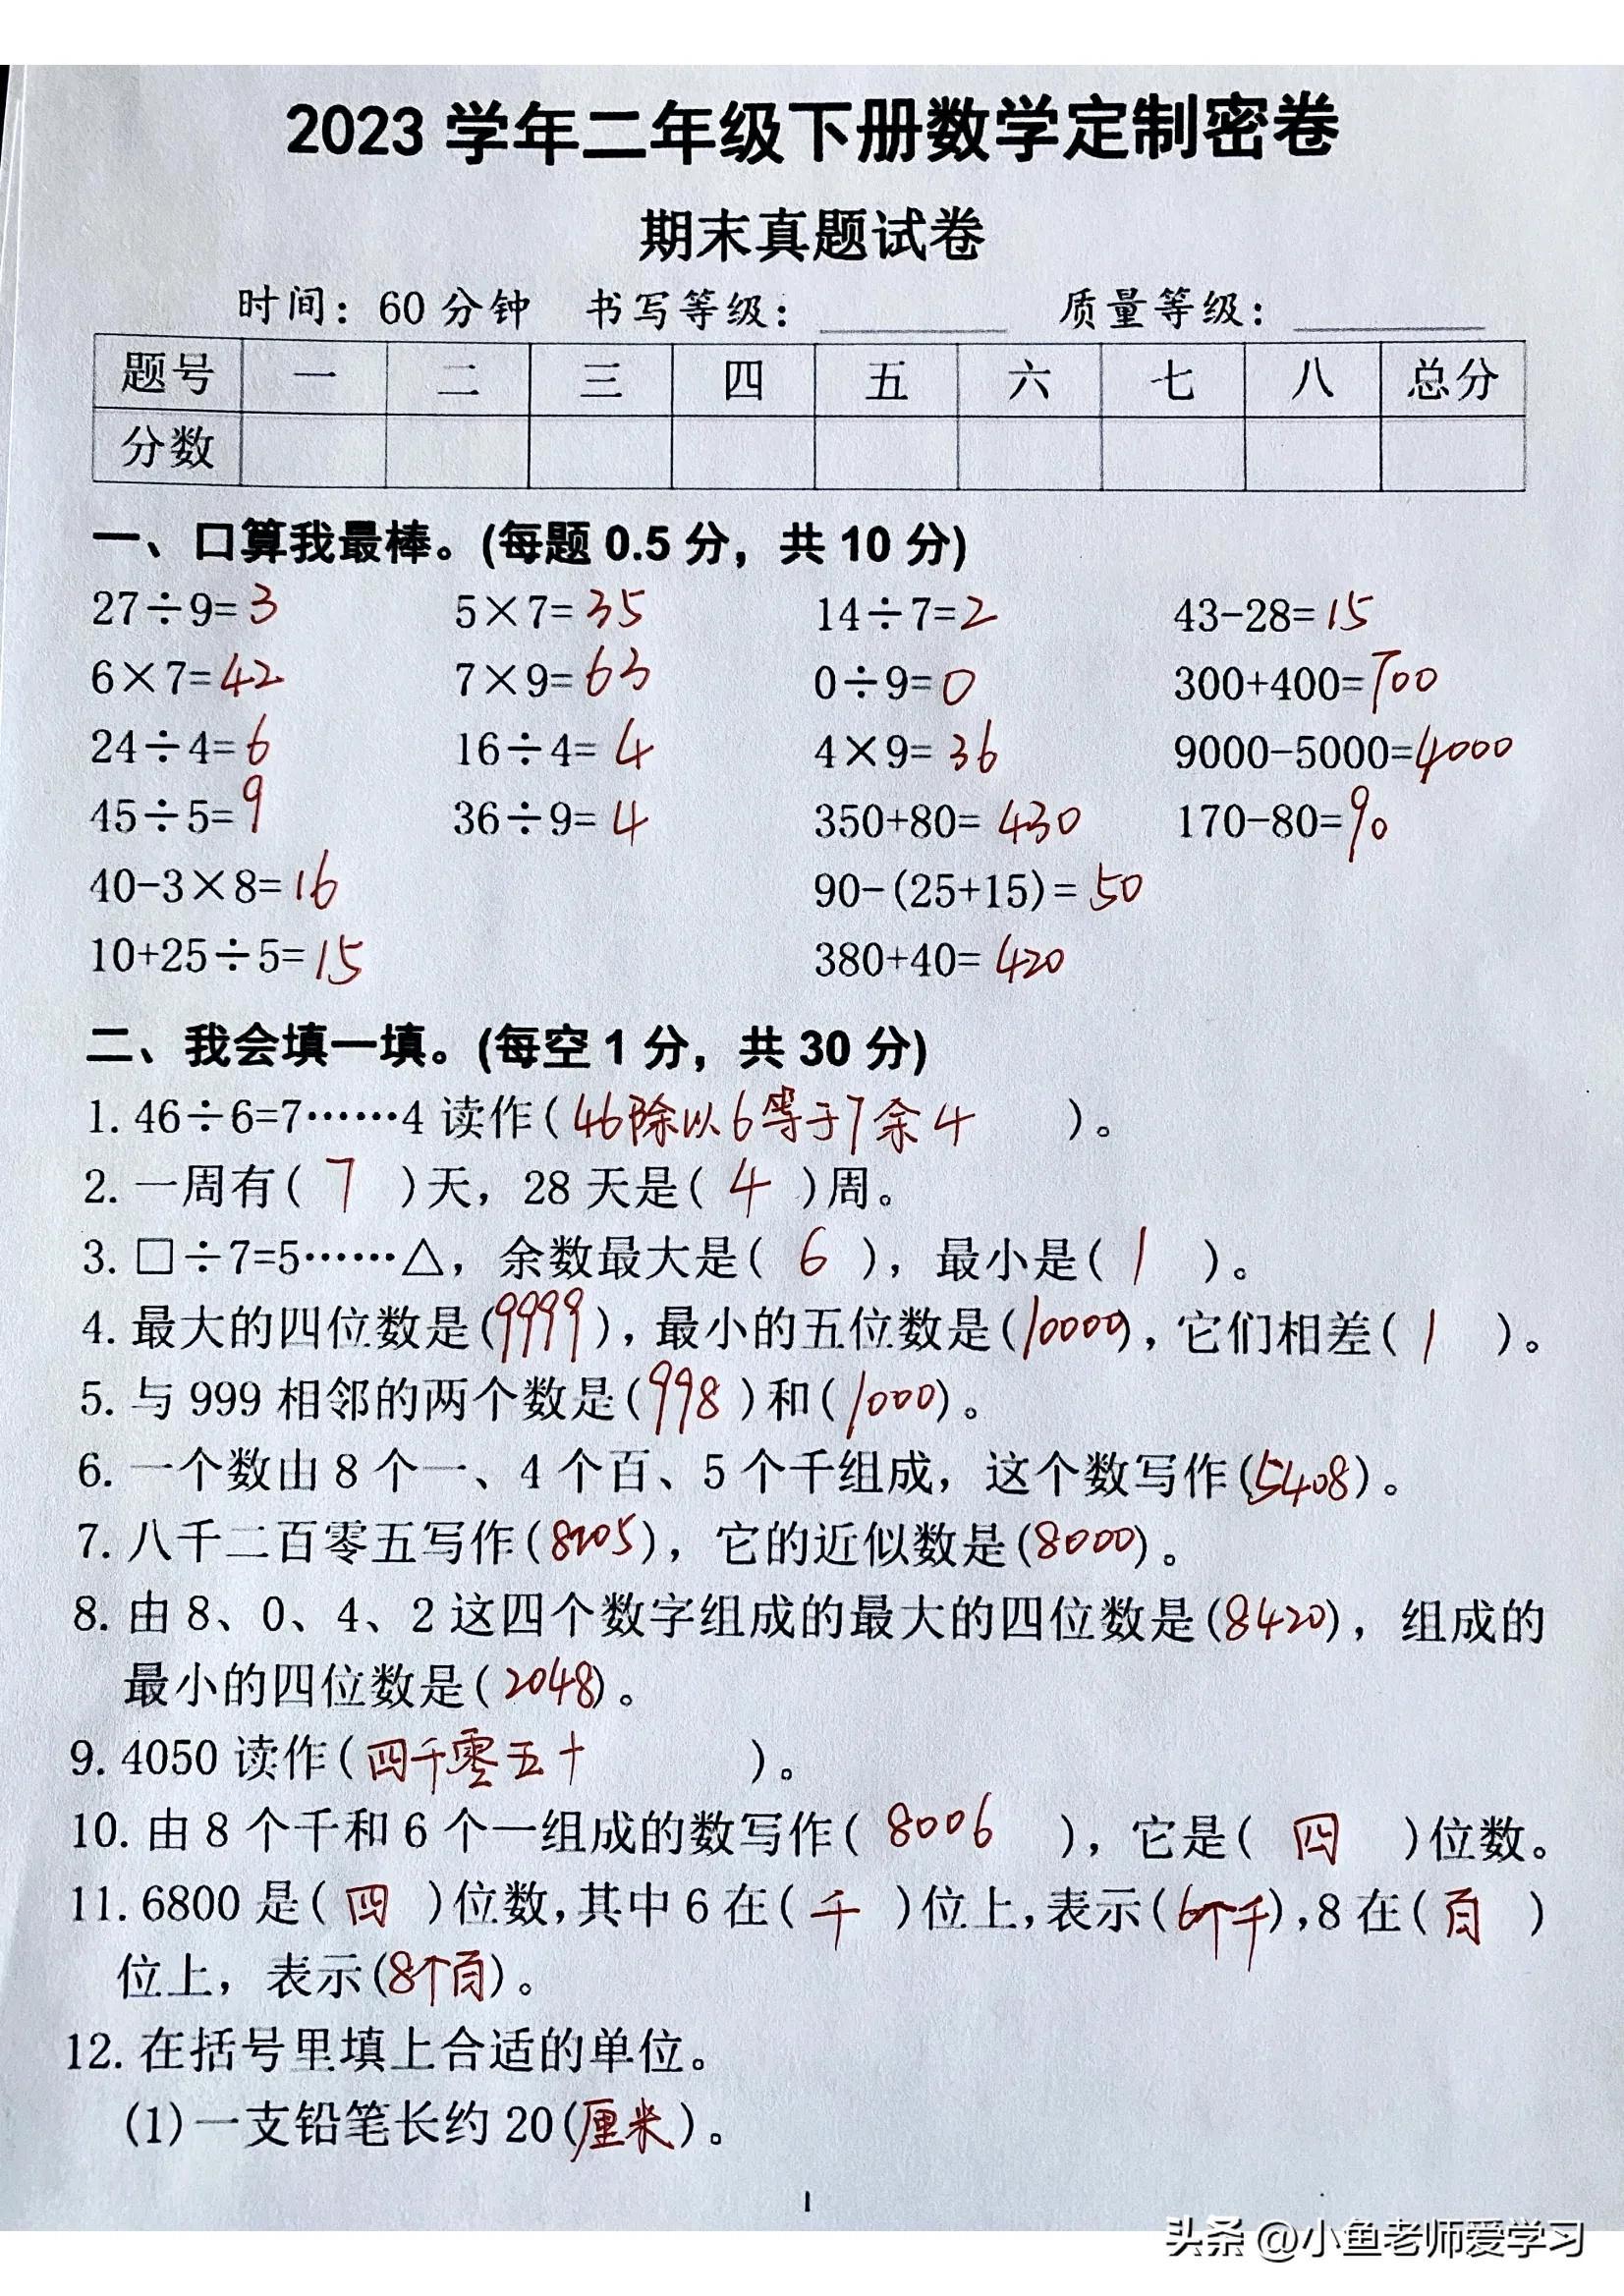 2023 学年二年级下册数学定制密卷
期末真题试卷
时间：60 分钟 书写等级：________ 质量等级：________
题号 一 二 三 四 五 六 七 八 总分
分数
一、口算我最棒。(每题 0.5 分，共 10 分)
27÷9=3 5×7=35 14÷7=2 43-28=15
6×7=42 7×9=63 0÷9=0 300+400=700
24÷4=6 16÷4=4 4×9=36 9000-5000=4000
45÷5=9 36÷9=4 350+80=430 170-80=90
40-3×8=16 90-(25+15)=50
10+25÷5=15 380+40=420
二、我会填一填。(每空 1 分，共 30 分)
1. 46÷6=7……4 读作(46除以6等于7余4)。
2. 一周有(7)天，28 天是(4)周。
3. □÷7=5……△，余数最大是(6)，最小是(1)。
4. 最大的四位数是(9999)，最小的五位数是(10000)，它们相差(1)。
5. 与 999 相邻的两个数是(998)和(1000)。
6. 一个数由 8 个一、4 个百、5 个千组成，这个数写作(5408)。
7. 八千二百零五写作(8205)，它的近似数是(8000)。
8. 由 8、0、4、2 这四个数字组成的最大的四位数是(8420)，组成的
最小的四位数是(2048)。
9. 4050 读作(四千零五十)。
10. 由 8 个千和 6 个一组成的数写作(8006)，它是(四)位数。
11. 6800 是(四)位数，其中 6 在(千)位上，表示(6个千)，8 在(百)
位上，表示(8个百)。
12. 在括号里填上合适的单位。
(1)一支铅笔长约 20(厘米)。
1
头条 @小鱼老师爱学习